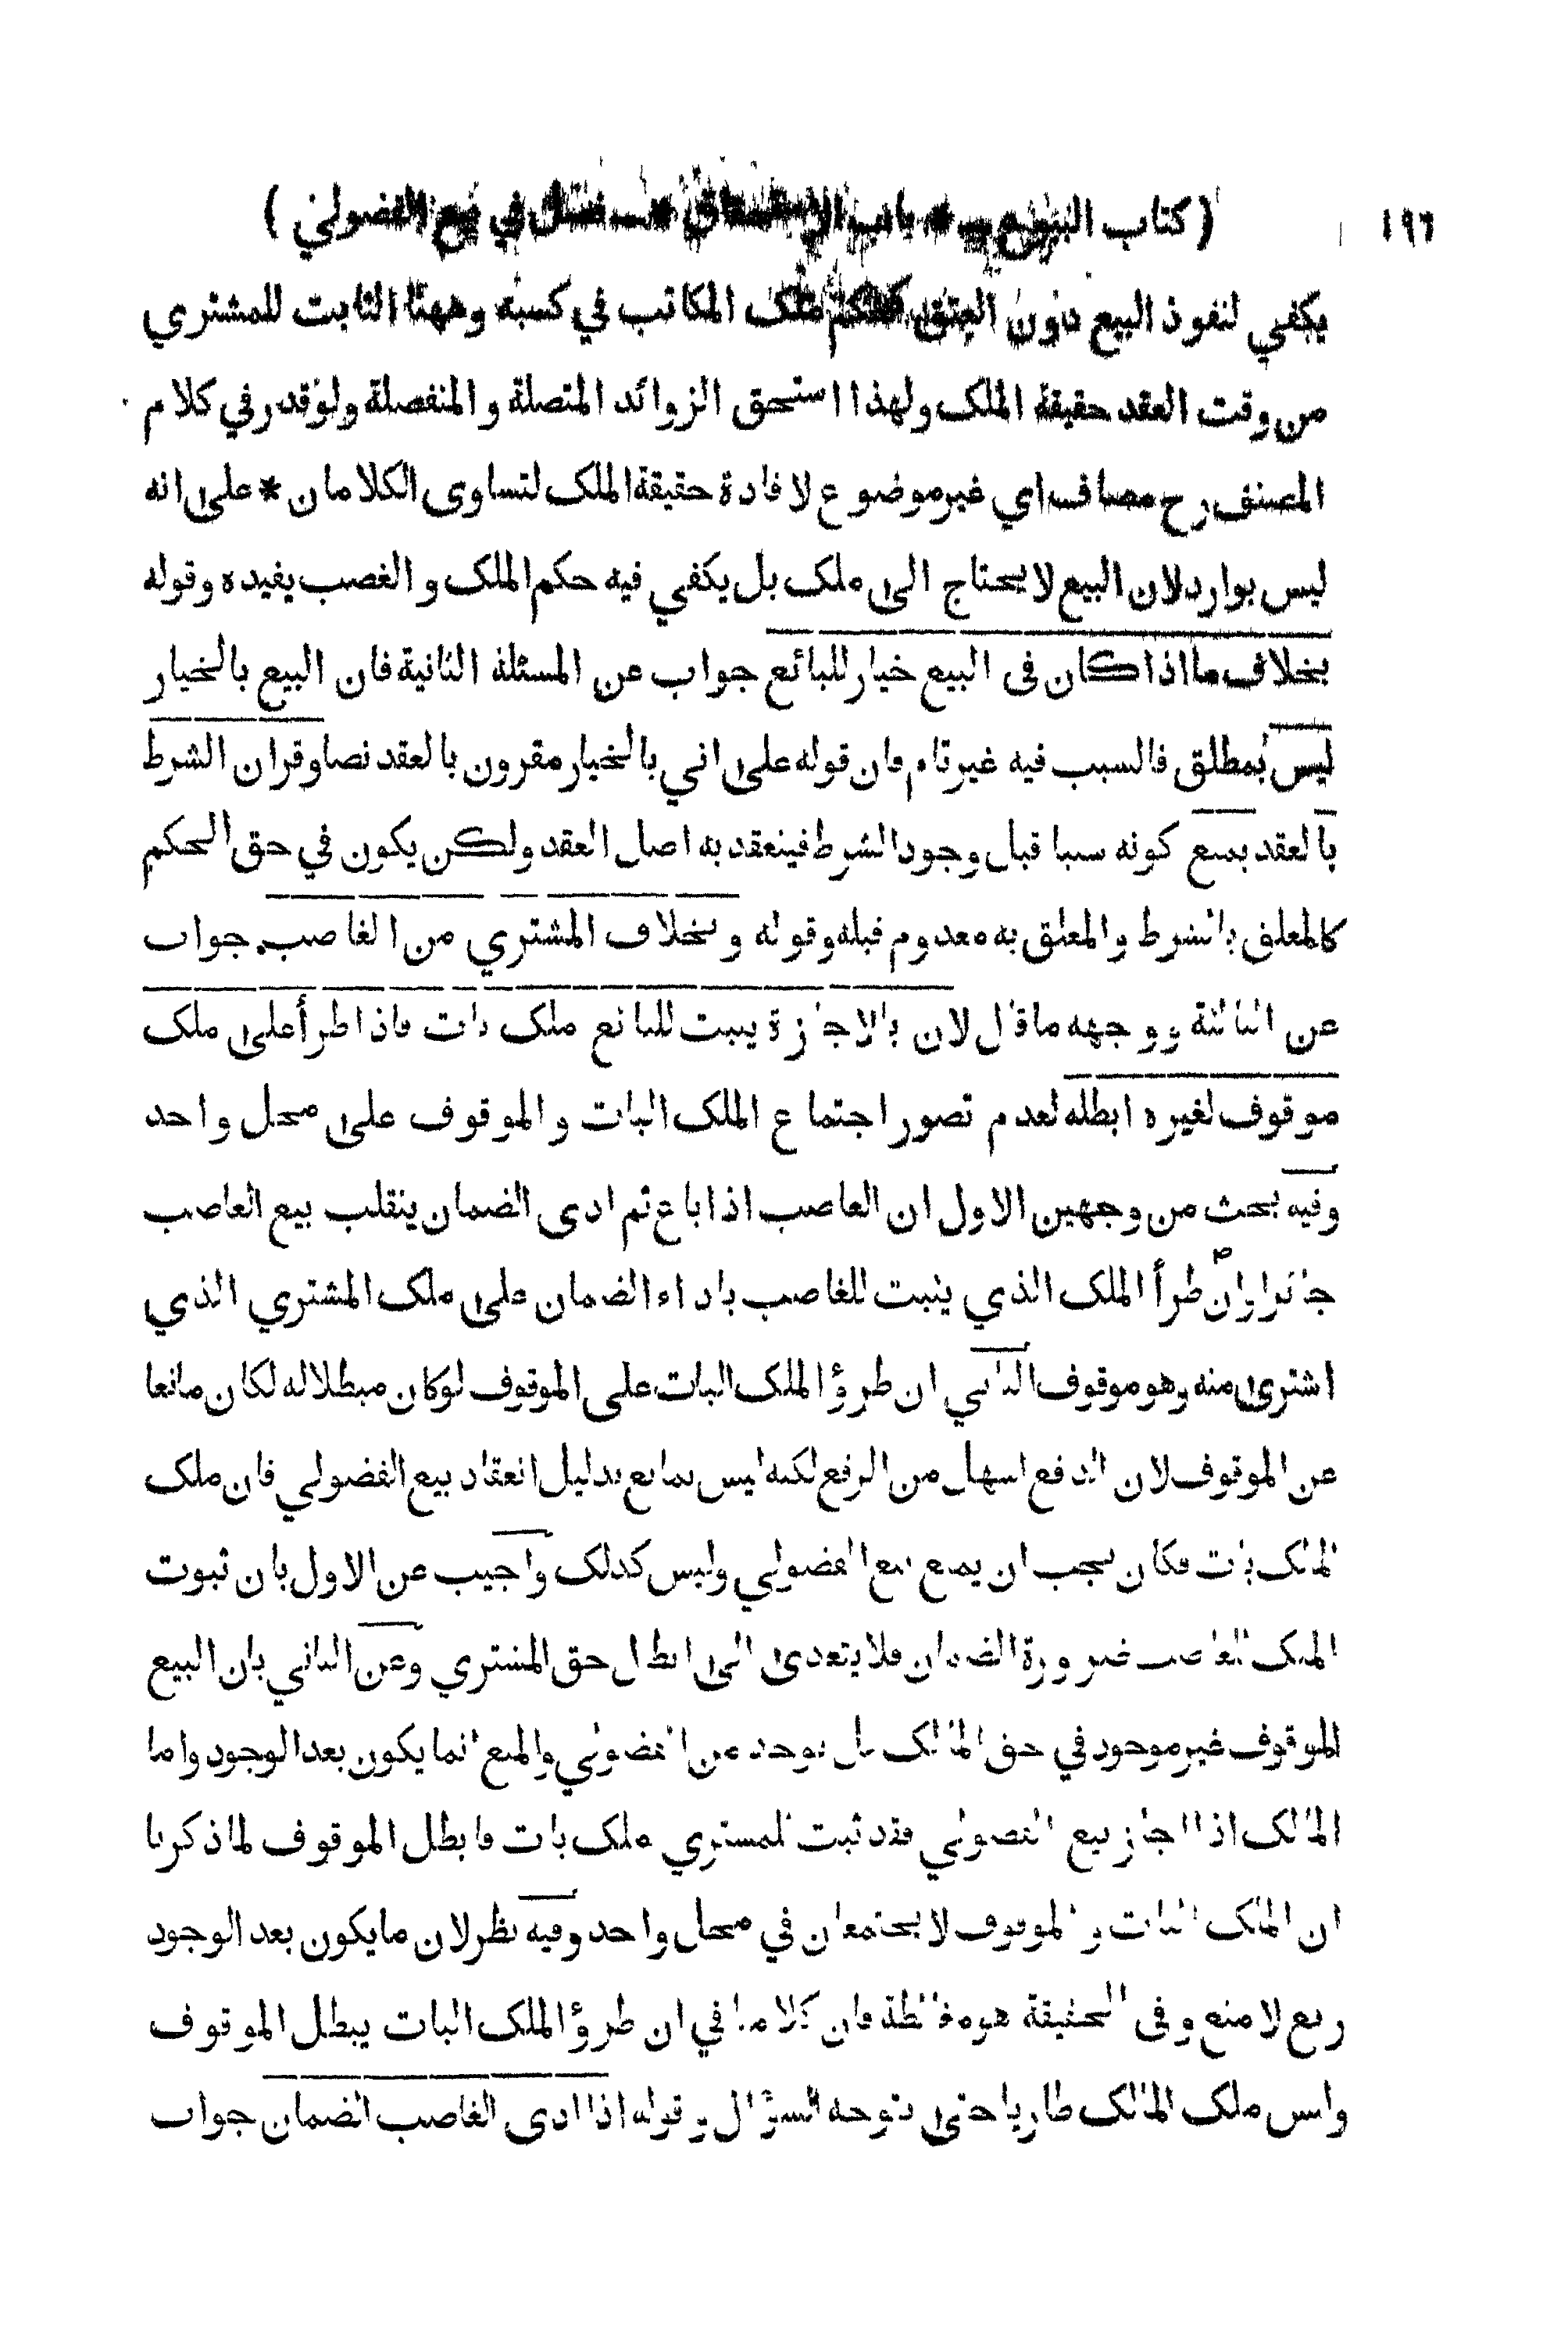 ١٩٦ ( كتاب البيوع ــ * باب الاستحقاق * ــ فصل في بيع الفضولي )
يكفي لنفوذ البيع دون العتق كحكم ملك المكاتب في كسبه وههنا الثابت للمشتري
من وقت العقد حقيقة الملك ولهذا استحق الزوائد المتصلة والمنفصلة ولوقدر في كلام
المصنف رح مضاف اي غير موضوع لافادة حقيقة الملك لتساوى الكلامان * على انه
ليس بوارد لان البيع لا يحتاج الى ملك بل يكفي فيه حكم الملك و الغصب يفيده وقوله
بخلاف ما اذا كان فى البيع خيار للبائع جواب عن المسئلة الثانية فان البيع بالخيار
ليس بمطلق فالسبب فيه غير تام فان قوله على اني بالخيار مقرون بالعقد نصا وقران الشرط
بالعقد يمنع كونه سببا قبل وجود الشرط فينعقد به اصل العقد ولكن يكون في حق الحكم
كالمعلق بالشرط والمعلق به معدوم قبله وقوله وبخلاف المشتري من الغاصب جواب
عن الثالثة ووجهه ما قال لان بالاجازة يثبت للبائع ملك بات فاذا طرأ على ملك
موقوف لغيره ابطله لعدم تصور اجتماع الملك البات والموقوف على محل واحد
وفيه بحث من وجهين الاول ان الغاصب اذا باع ثم ادى الضمان ينقلب بيع الغاصب
جائزا وان طرأ الملك الذي يثبت للغاصب باداء الضمان على ملك المشتري الذي
اشترى منه وهو موقوف الثاني ان طرؤ الملك البات على الموقوف لوكان مبطلا له لكان مانعا
عن الموقوف لان الدفع اسهل من الرفع لكنه ليس بمانع بدليل انعقاد بيع الفضولي فان ملك
المالك بات فكان يجب ان يمنع بيع الفضولي وليس كذلك واجيب عن الاول بان ثبوت
الملك للغاصب ضرورة الضمان فلا يتعدى الى ابطال حق المشتري وعن الثاني بان البيع
الموقوف غير موجود في حق المالك بل يوجد من الفضولي والمنع انما يكون بعد الوجود واما
المالك اذا اجاز بيع الفضولي فقد ثبت للمشتري ملك بات فابطل الموقوف لما ذكرنا
ان الملك البات والموقوف لا يجتمعان في محل واحد وفيه نظر لان ما يكون بعد الوجود
رفع لا منع وفى الحقيقة هو مغالطة فان كلامنا في ان طرؤ الملك البات يبطل الموقوف
وليس ملك المالك طاريا حتى يتوجه السؤال وقوله اذا ادى الغاصب الضمان جواب